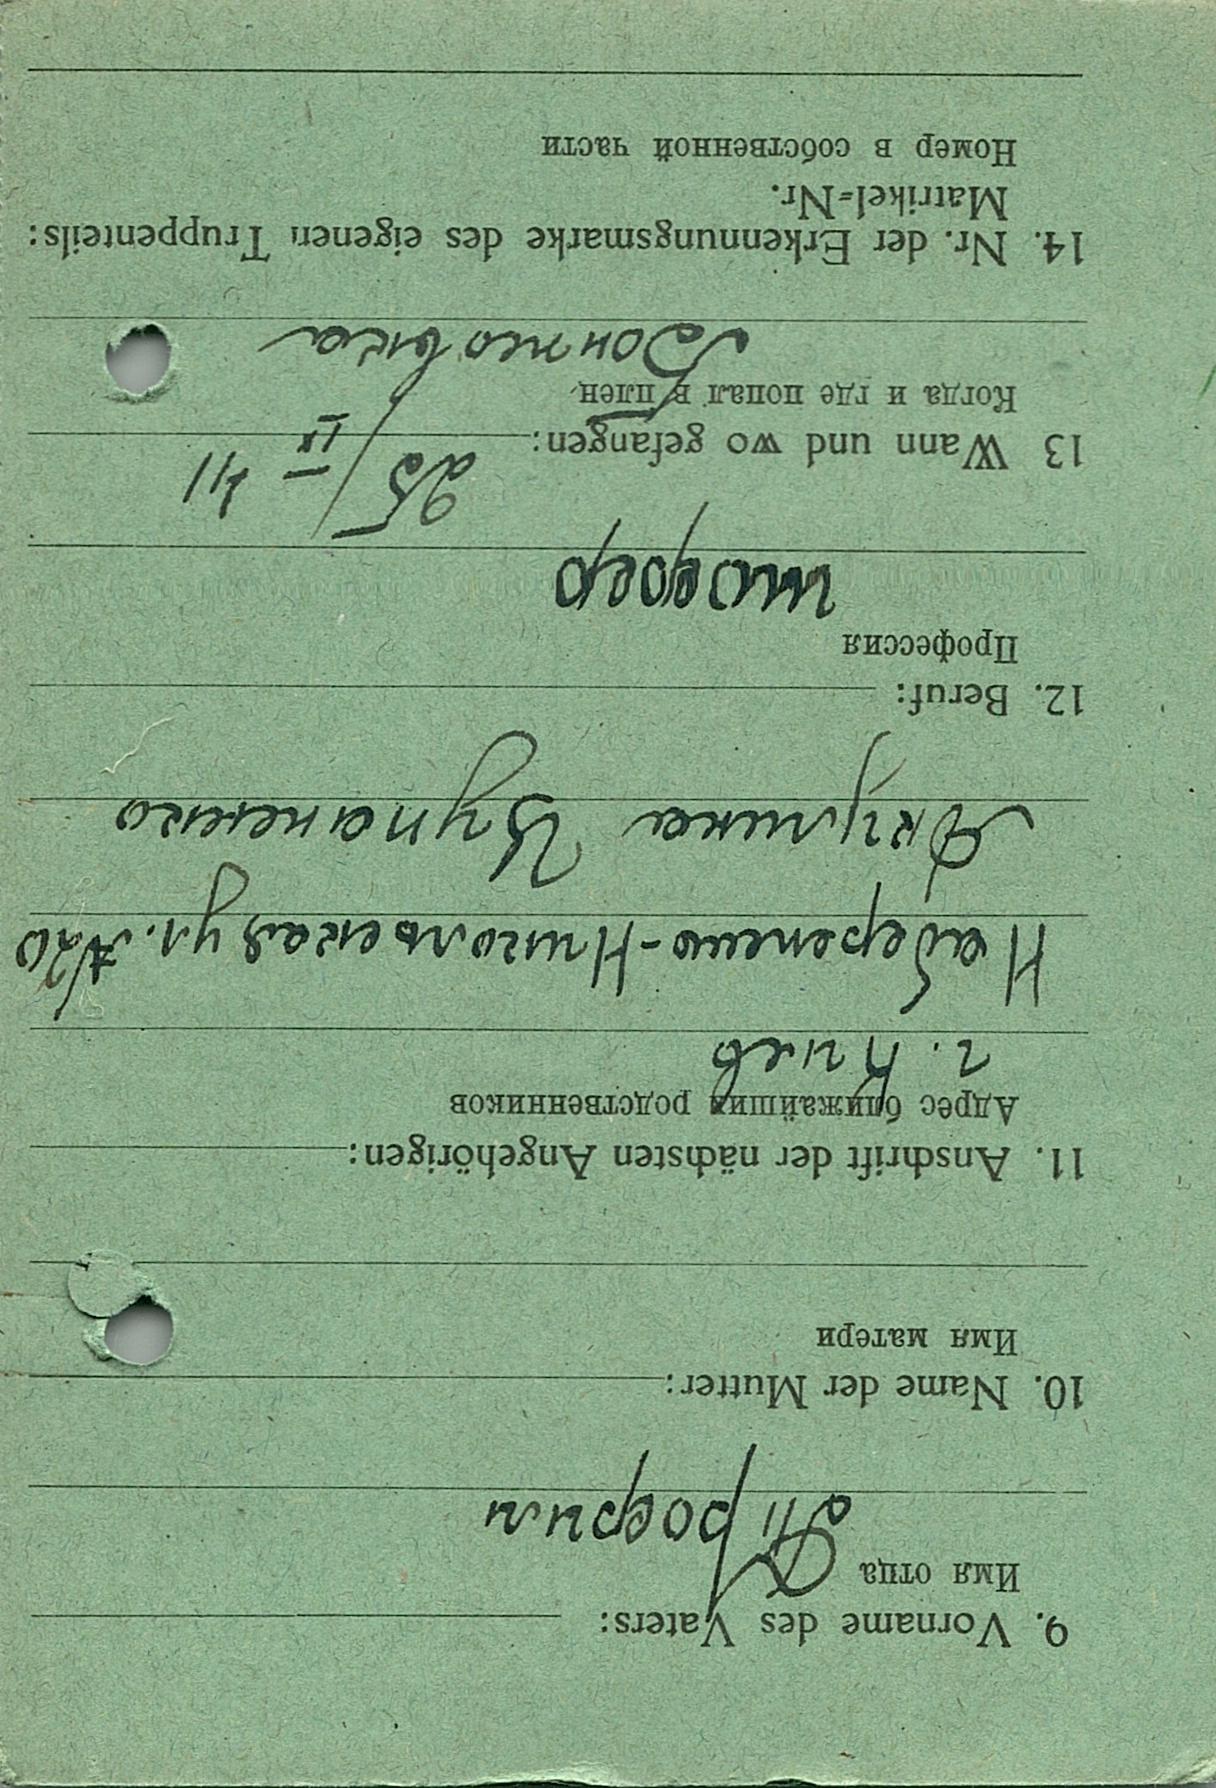 9. Vorname des Vaters:
Имя отца
Трофим
10. Name der Mutter:
Имя матери
11. Anschrift der nächsten Angehörigen:
Адрес ближайших родственников
г. Киев
Набережно-Никольская ул. №20
Акулина
12. Beruf:
Профессия
шофер
13 Wann und wo gefangen:
25/IX-41
Когда и где попал в плен
14. Nr. der Erkennungsmarke des eigenen Truppenteils:
Matrikel=Nr.
Номер в собственной части